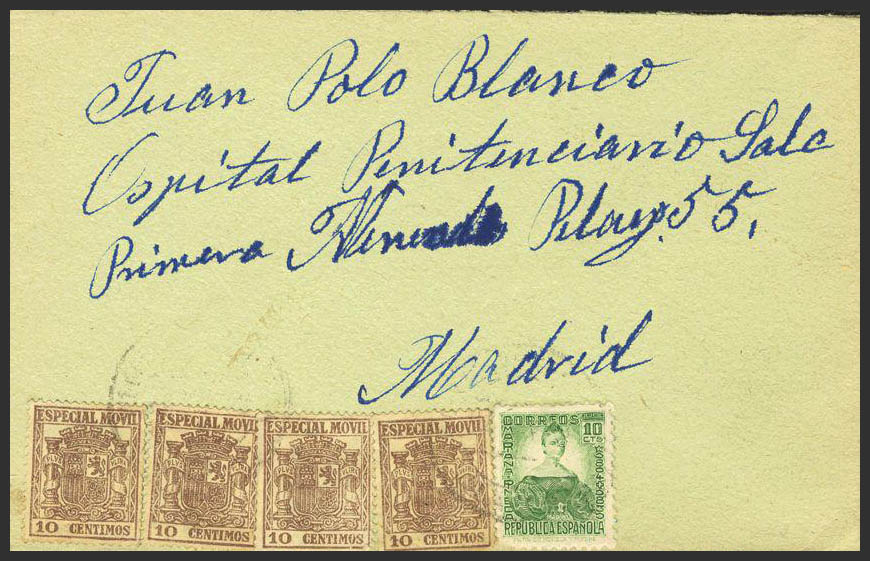 Juan Polo Blanco
Ospital Penitenciario Sala
Primera Pelayo. 55.
Madrid
ESPECIAL MOVIL
10 CENTIMOS
ESPECIAL MOVIL
10 CENTIMOS
ESPECIAL MOVIL
10 CENTIMOS
ESPECIAL MOVIL
10 CENTIMOS
CORREOS
10 CTS
MARIANA PINEDA
REPUBLICA ESPAÑOLA